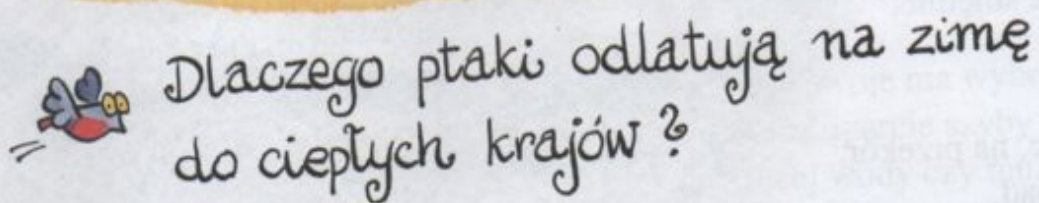 Dlaczego ptaki odlatują na zimę
do ciepłych krajów?